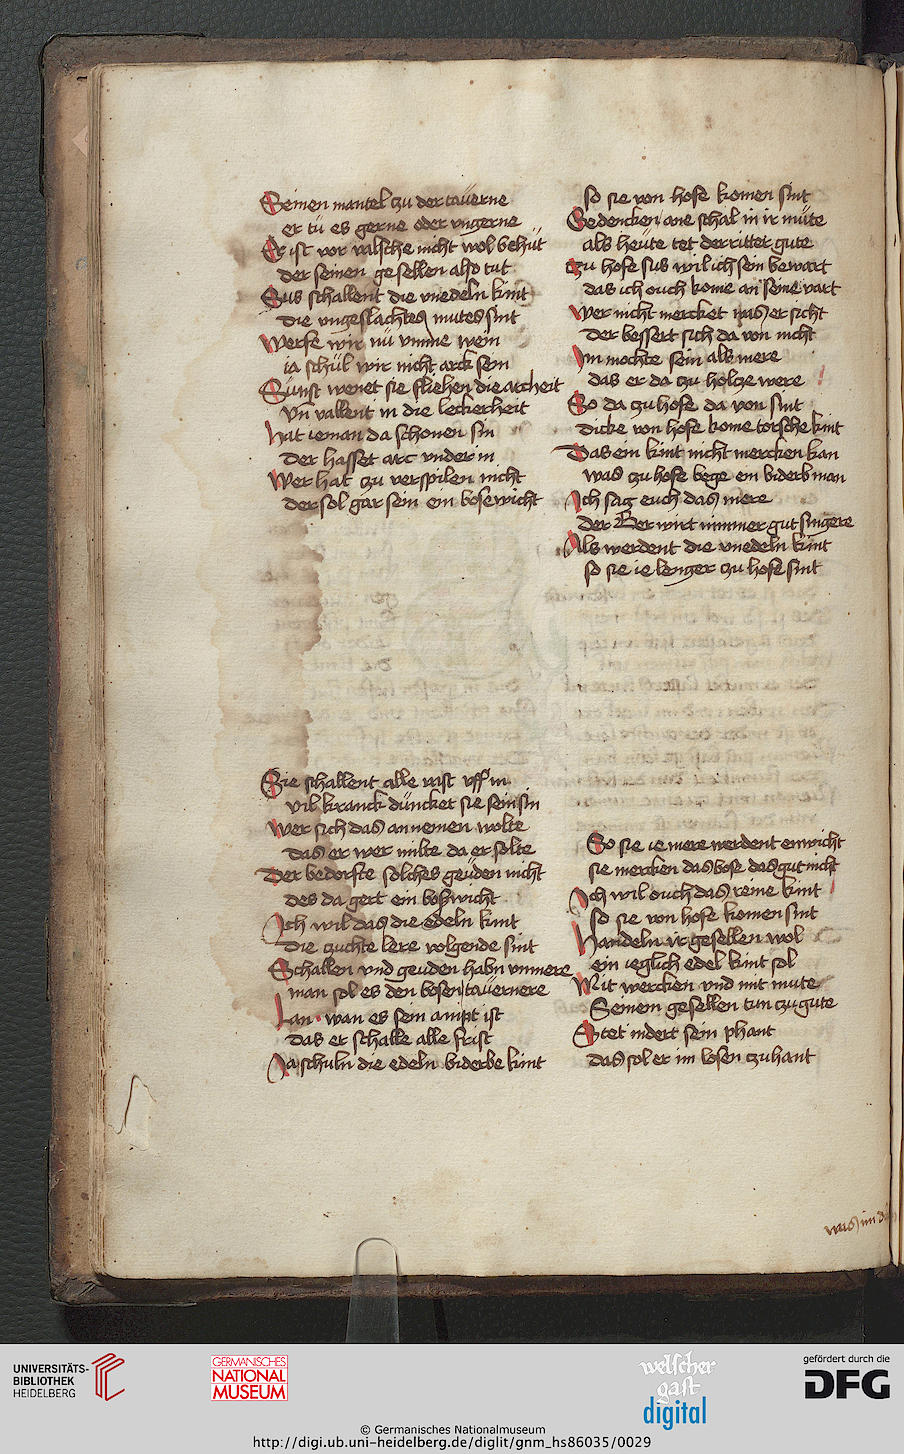 Seinen mantel czu der tauerne
er tü es gerne oder vngerne
Er ist vor valsche nicht wol behüt
der seinen gesellen also tut
Sus schallent die vnedeln kint
die vngeslachtes mutes sint
Werfe wir nü vmme wein
ia schül wir nicht arck sein
Sunst wenet sie fliehen die archeit
vñ vallent in die leckerheit
Hat ieman da schonen sin
der hasset arc vnder in
Wer hat czu verspilen nicht
der sol gar sein ein bosewicht
Sie schallent alle vast vff in
vil kranck düncket sie sein sin
Wer sich das annemen wolte
das er wer milte da er solte
Der bedorfte solches geuden nicht
des da gert ein boszwicht
Ich wil das die edeln kint
die czuchte lere volgende sint
Schallen vnd geuden habn vnmere
man sol es den bosen tauernere
Lan wan es sein ampt ist
das er schalle alle frist
Ja schuln die edeln biderbe kint
so sie von hofe komen sint
Gedencken ane schal in ir müte
als heüte tet der ritter gute
Zu hofe sus wil ich sein bewart
das ich ouch kome an seine vart
Wer nicht mercket was er sicht
der bessert sich da von nicht
Im mochte sein als mere
das er da czu holcze were
So da czu hofe da von sint
dicke von hofe kome torsche kint
Das ein kint nicht mercken kan
was czu hofe bege ein biderb man
Ich sag euch das mere
der Ber wirt nimmer gut singere
Als werdent die vnedeln kint
so sie ie lenger czu hofe sint
So sie ie mere werdent enwicht
sie mercken das bose das gut nicht
Ich wil ouch das reine kint
so sie von hofe komen sint
Handeln ir gesellen wol
ein ieglich edel kint sol
Mit wercken vnd mit mute
Seinem gesellen tun czu gute
Stet indert sein phant
das sol er im losen czuhant
was im
UNIVERSITÄTS-
BIBLIOTHEK
HEIDELBERG
GERMANISCHES
NATIONAL
MUSEUM
welscher
gast
digital
gefördert durch die
DFG
© Germanisches Nationalmuseum
http://digi.ub.uni-heidelberg.de/diglit/gnm_hs86035/0029